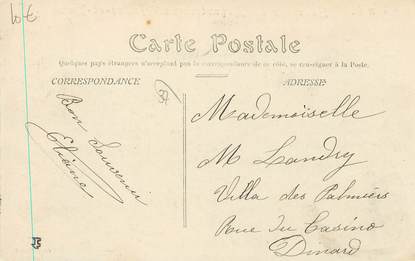 10€
Carte Postale
Quelques pays étrangers n'acceptant pas la correspondance de ce côté, se renseigner à la Poste.
CORRESPONDANCE
ADRESSE
Bon Souvenir
Eliane
Mademoiselle
M Landry
Villa des Palmiers
Rue du Casino
Dinard